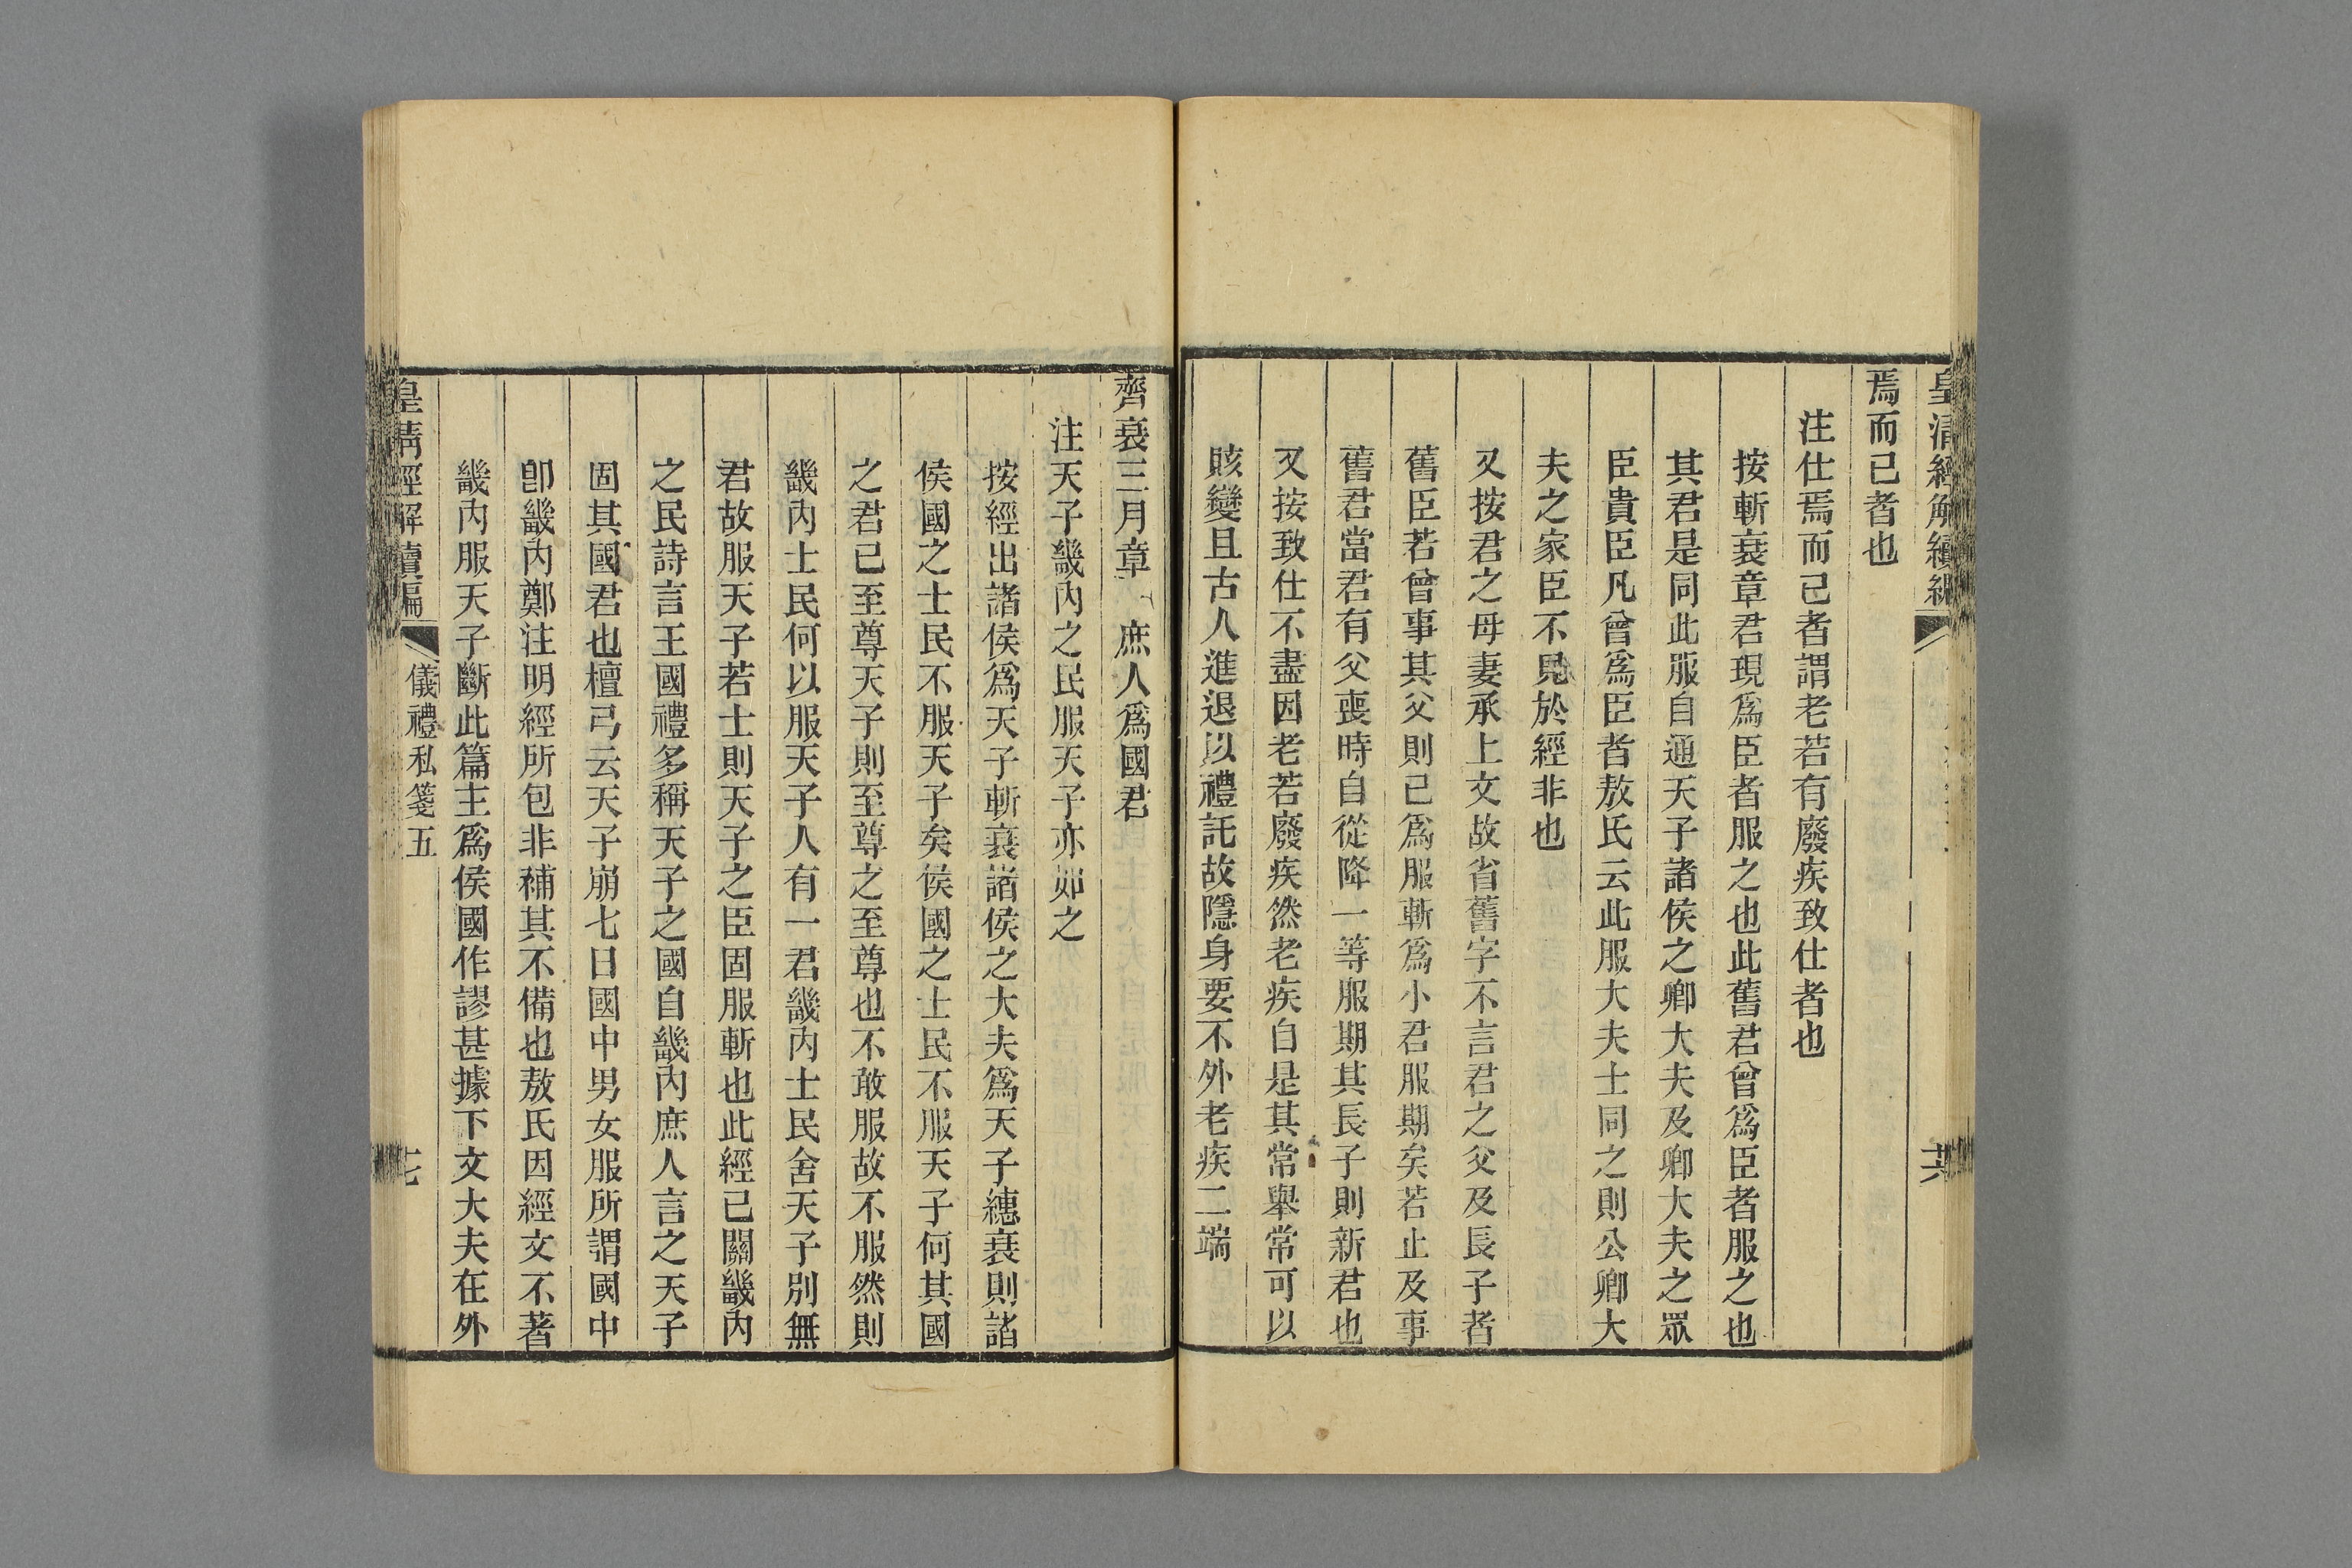 皇清經解續編
焉而已者也
注仕焉而已者謂老若有廢疾致仕者也
按斬衰章君現爲臣者服之也此舊君曾爲臣者服之也
其君是同此服自通天子諸侯之卿大夫及卿大夫之眾
臣貴臣凡曾爲臣者敖氏云此服大夫士同之則公卿大
夫之家臣不見於經非也
又按君之母妻承上文故省舊字不言君之父及長子者
舊臣若曾事其父則已爲服斬爲小君服期矣若止及事
舊君當君有父喪時自從降一等服期其長子則新君也
又按致仕不盡因老若廢疾然老疾自是其常舉常可以
賅變且古人進退以禮託故隱身要不外老疾二端
齊衰三月章 庶人爲國君
注天子畿內之民服天子亦如之
按經出諸侯爲天子斬衰諸侯之大夫爲天子繐衰則諸
侯國之士民不服天子矣侯國之士民不服天子何其國
之君已至尊天子則至尊之至尊也不敢服故不服然則
畿內士民何以服天子人有一君畿內士民舍天子別無
君故服天子若士則天子之臣固服斬也此經已關畿內
之民詩言王國禮多稱天子之國自畿內庶人言之天子
固其國君也檀弓云天子崩七日國中男女服所謂國中
卽畿內鄭注明經所包非補其不備也敖氏因經文不著
畿內服天子斷此篇主爲侯國作謬甚據下文大夫在外
皇清經解續編 儀禮私箋五